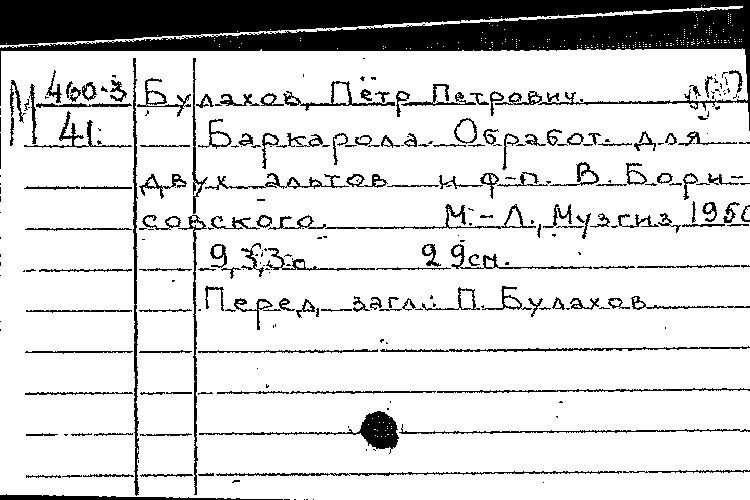 М 460-3 Булахов, Пётр Петрович.
41. Баркарола. Обработ. для
двух альтов и ф-п. В. Бори-
совского. М.-Л., Музгиз, 1950
9,3,3 с. 29 см.
Перед загл.: П. Булахов